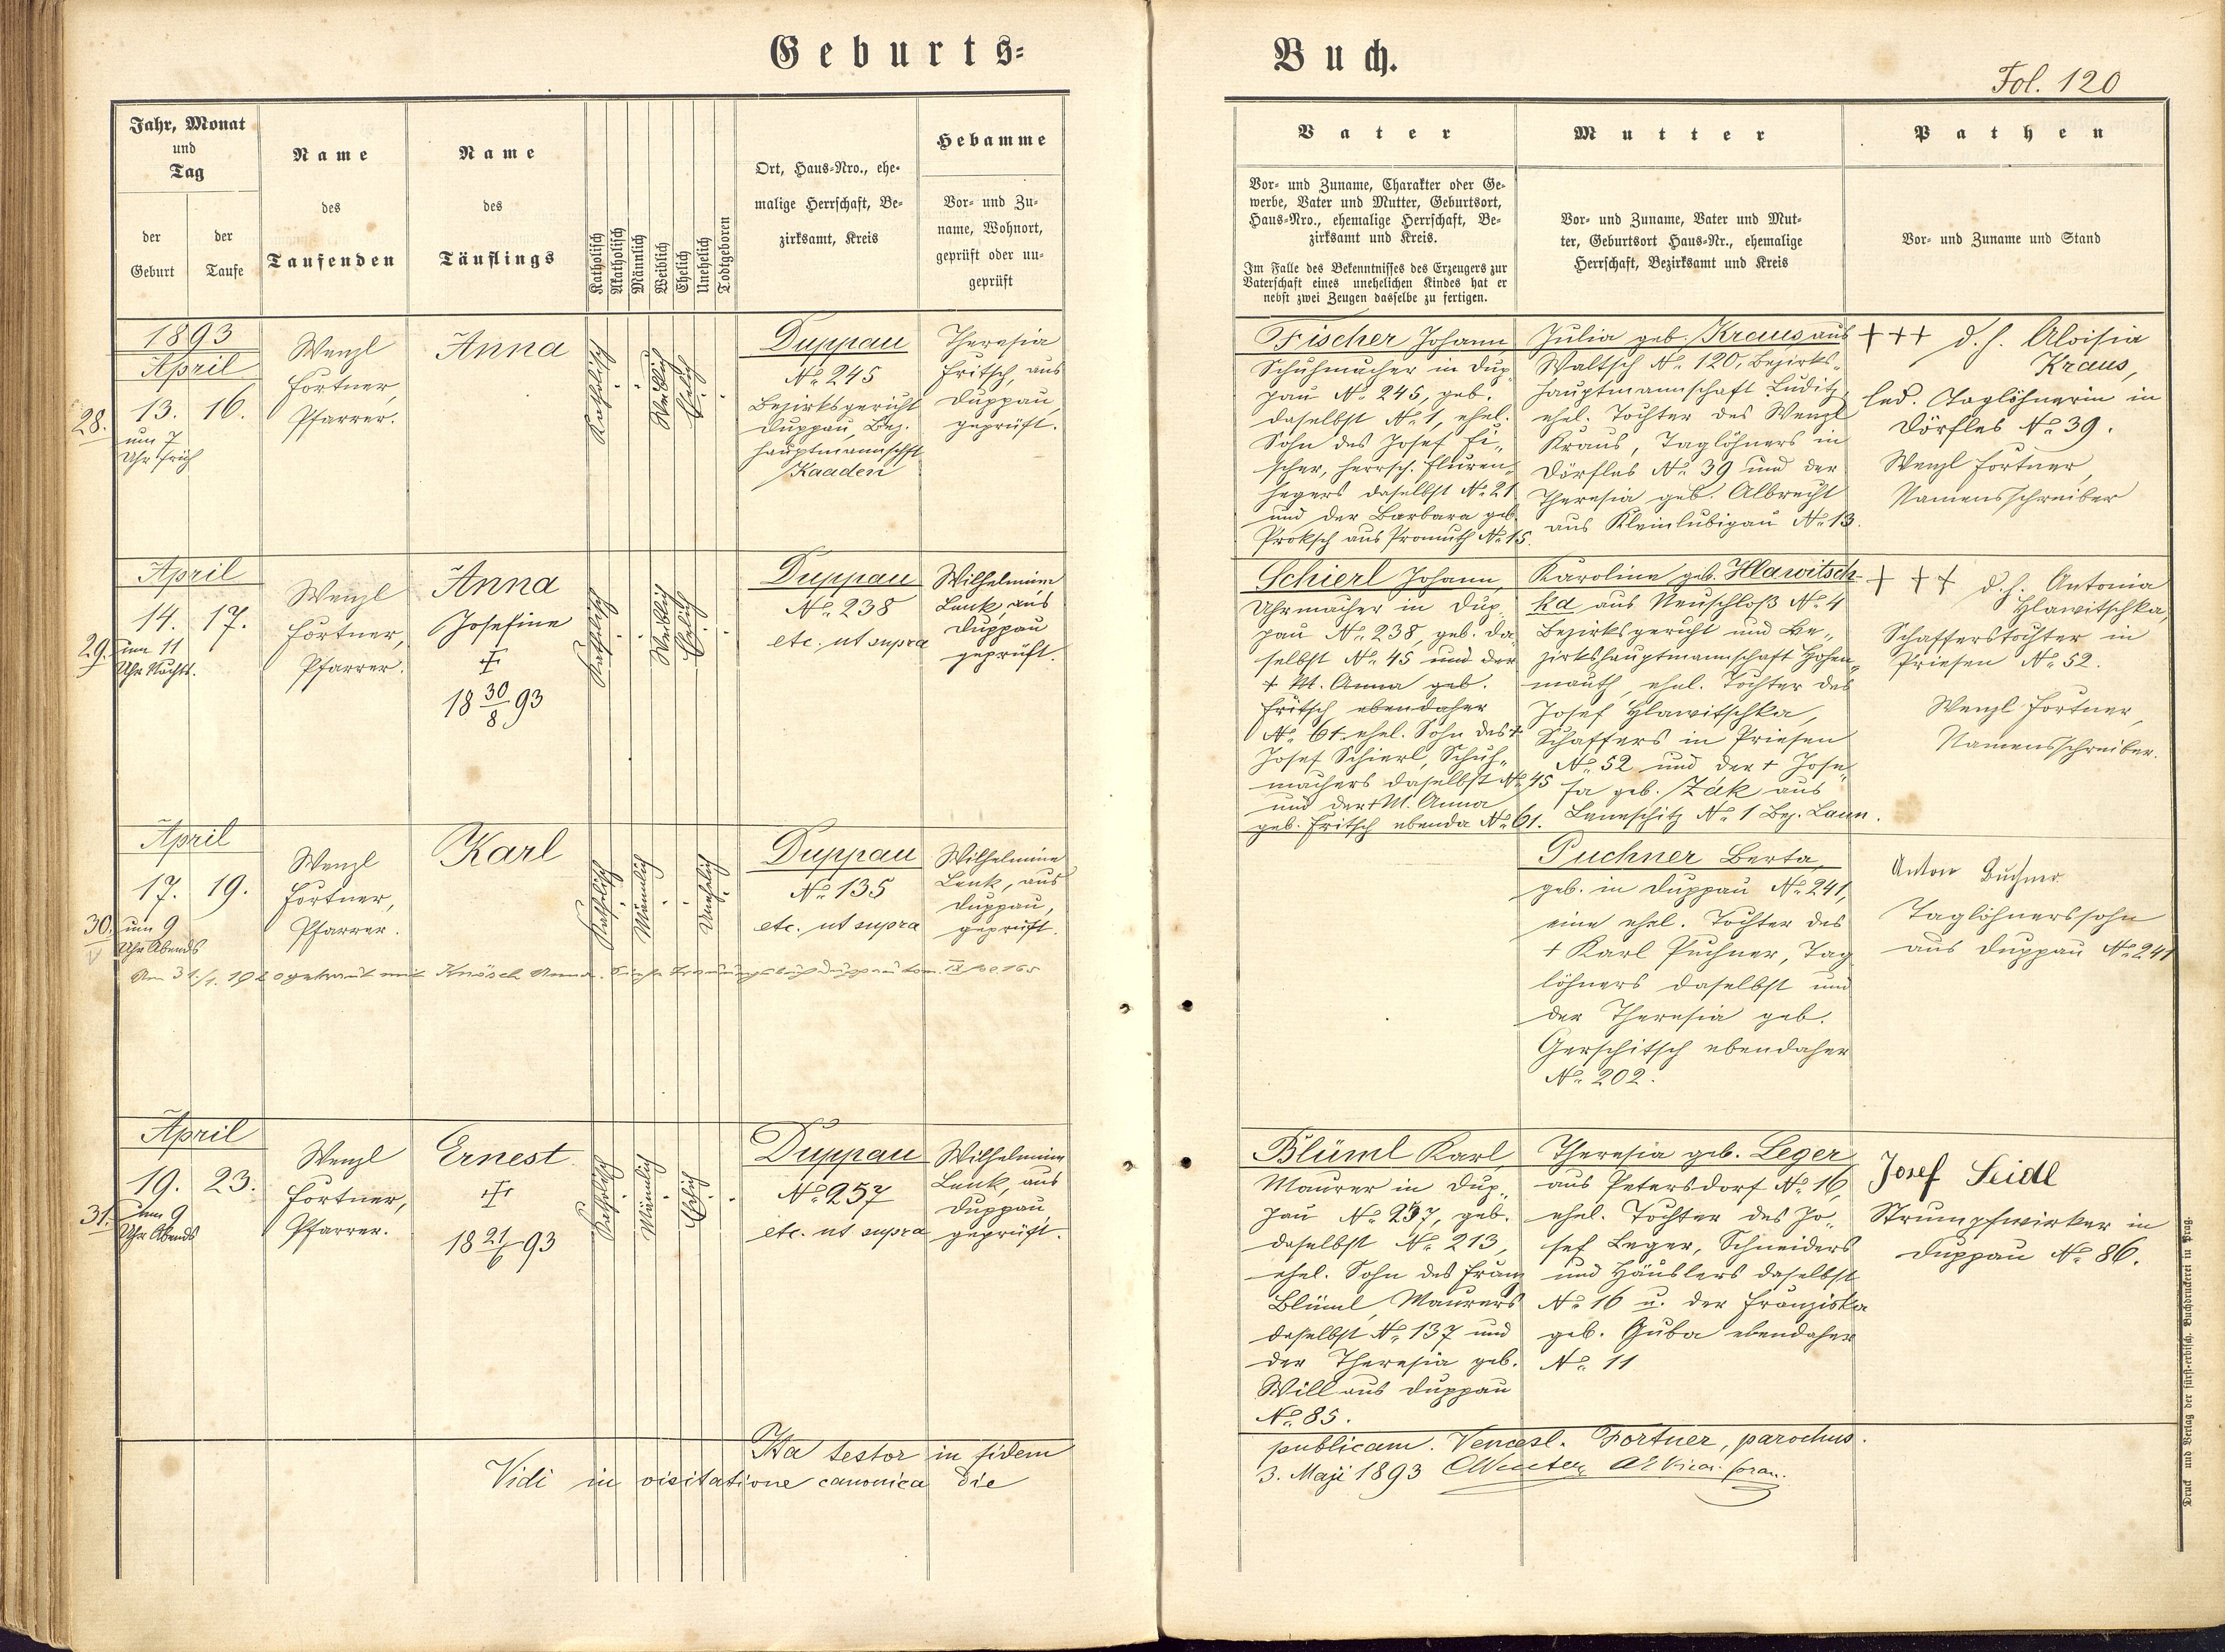 Geburts=
Buch.
Fol. 120
Jahr, Monat
und
Tag
der
Geburt
der
Taufe
Name
des
Taufenden
Name
des
Täuflings
Katholisch
Akatholisch
Männlich
Weiblich
Ehelich
Unehelich
Todtgeboren
Ort, Haus=Nro., ehe=
malige Herrschaft, Be=
zirksamt, Kreis
Hebamme
Vor= und Zu=
name, Wohnort,
geprüft oder un=
geprüft
Vater
Vor= und Zuname, Charakter oder Ge=
werbe, Vater und Mutter, Geburtsort,
Haus=Nro., ehemalige Herrschaft, Be=
zirksamt und Kreis.
Im Falle des Bekenntnisses des Erzeugers zur
Vaterschaft eines unehelichen Kindes hat er
nebst zwei Zeugen dasselbe zu fertigen.
Mutter
Vor= und Zuname, Vater und Mut=
ter, Geburtsort Haus=Nr., ehemalige
Herrschaft, Bezirksamt und Kreis
Pathen
Vor= und Zuname und Stand
28.
1893
April
13. 16.
um 7
Uhr früh
Wenzl
Fortner,
Pfarrer.
Anna
Katholisch
Weiblich
Ehelich
Duppau
No 245
Bezirksgericht
Duppau, Bez.
hauptmannschft
Kaaden
Theresia
Fritsch, aus
Duppau,
geprüft.
Fischer Johann,
Schuhmacher in Dup„
pau No 245, geb.
daselbst No 1, ehel.
Sohn des Josef Fi„
scher, herrsch. Fluren„
hegers daselbst No 21
und der Barbara geb.
Proksch aus Promuth No 15.
Julia geb. Kraus aus
Waltsch No 120, Bezirks„
hauptmannschaft Luditz
ehel. Tochter des Wenzl
Kraus, Taglöhners in
Dörfles No 39 und der
Theresia geb. Albrecht
aus Kleinlubigau No 13.
+++ d. h. Aloisia
Kraus,
led. Taglöhnerin in
Dörfles No 39.
Wenzl Fortner,
Namensschreiber
29.
April
14. 17.
um 11
Uhr Nachts.
Wenzl
Fortner,
Pfarrer.
Anna
Josefine
‡
18 30/8 93
Katholisch
Weiblich
Ehelich
Duppau
No 238
etc. ut supra
Wilhelmine
Lenk, aus
Duppau
geprüft.
Schierl Johann,
Uhrmacher in Dup„
pau No 238, geb. da„
selbst No 45 und der
+ M. Anna geb.
Fritsch ebendaher
No 61 ehel. Sohn des +
Josef Schierl, Schuh„
machers daselbst No 45
und der + M. Anna
geb. Fritsch ebenda No 61.
Karoline geb. Hlawitsch„
ka aus Neuschloß No 4
Bezirksgericht und Be„
zirkshauptmannschaft Hohen„
mauth, ehel. Tochter des
Josef Hlawitschka,
Schaffers in Priesen
No 52 und der + Jose„
fa geb. Zák aus
Leneschitz No 1 Bez. Laun.
+ + + d. h. Antonia
Hlawitschka,
Schafferstochter in
Priesen No 52.
Wenzl Fortner,
Namensschreiber.
30.
April
17. 19.
um 9
Uhr Abends
Wenzl
Fortner,
Pfarrer.
Karl
Katholisch
Männlich
Unehelich
Duppau
No 135
etc. ut supra
Wilhelmine
Lenk, aus
Duppau,
geprüft.
Am 31./1. 1920 getraut mit Knösch Anna. Siehe Trauungsbuch Duppau tom. IX fol 165
Puchner Berta,
geb. in Duppau No 241,
eine ehel. Tochter des
+ Karl Puchner, Tag
löhners daselbst und
der Theresia geb.
Gerschitsch ebendaher
No 202.
Anton Buchner
Taglöhnerssohn
aus Duppau No 241
31.
April
19. 23.
um 9
Uhr Abends
Wenzl
Fortner,
Pfarrer.
Ernest
‡
18 21/6 93
Katholisch
Männlich
Ehelich
Duppau
No 257
etc. ut supra
Wilhelmine
Lenk, aus
Duppau,
geprüft.
Blüml Karl,
Maurer in Dup„
pau No 257, geb.
daselbst No 213,
ehel. Sohn des Franz
Blüml, Maurers
daselbst No 137 und
der Theresia geb.
Will aus Duppau
No 85.
Theresia geb. Leger
aus Petersdorf No 16,
ehel. Tochter des Jo„
sef Leger, Schneiders
und Häuslers daselbst
No 16 u. der Franziska
geb. Guba ebendaher
No 11
Josef Seidl
Strumpfwirker in
Duppau No 86.
Ita testor in fidem
publicam. Vencesl. Fortner, parochus.
Vidi in visitatione canonica die
3. Maji 1893
Druck und Verlag der fürst=erzbisch. Buchdruckerei in Prag.